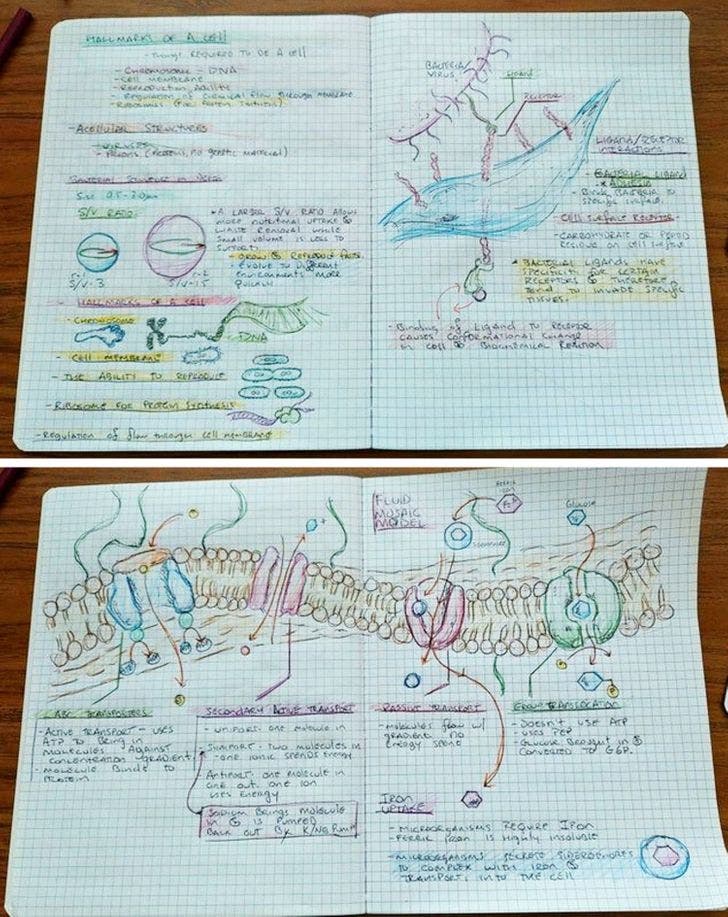 HALLMARKS OF A CELL
- THINGS REQUIRED TO BE A CELL
- CHROMOSOME - DNA
- CELL MEMBRANE
- REPRODUCTION ABILITY
- REGULATION OF CHEMICAL FLOW THROUGH MEMBRANE
- RIBOSOMES (FOR PROTEIN SYNTHESIS)
- ACELLULAR STRUCTURES
- VIRUSES
- PRIONS (PROTEINS, NO GENETIC MATERIAL)
BACTERIAL STRUCTURE IN
SIZE 0.5-2.0µm
S/V RATIO
A LARGER S/V RATIO ALLOWS
MORE NUTRITIONAL UPTAKE &
WASTE REMOVAL WHILE
SMALL VOLUME IS LESS TO
SUPPORT
- GROW & REPRODUCE FASTER
- EVOLVE TO DIFFERENT
ENVIRONMENTS MORE
QUICKLY
r=1
S/V=3
r=2
S/V=1.5
HALLMARKS OF A CELL
- CHROMOSOME
DNA
CELL MEMBRANE
- THE ABILITY TO REPRODUCE
- RIBOSOME FOR PROTEIN SYNTHESIS
- REGULATION OF flow through CELL MEMBRANE
BACTERIA/
VIRUS
LIGAND
RECEPTOR
LIGAND/RECEPTOR
INTERACTIONS
- BACTERIAL LIGAND
ADHESIN
- BINDS BACTERIA TO
SPECIFIC SURFACE
CELL SURFACE RECEPTOR
- CARBOHYDRATE OR
RESIDUE ON CELL SURFACE
BACTERIAL LIGANDS HAVE
SPECIFICITY FOR CERTAIN
RECEPTORS & THEREFORE
TEND TO INVADE SPECIFIC
TISSUES.
- BINDING OF LIGAND TO RECEPTOR
CAUSES CONFORMATIONAL CHANGE
IN CELL & BIOCHEMICAL REACTION
FLUID
MOSAIC
MODEL
FERRIC
IRON
SIDEROPHORE
GLUCOSE
P
ABC TRANSPORTERS
- ACTIVE TRANSPORT - USES
ATP TO BRING IN
MOLECULES AGAINST
CONCENTRATION GRADIENT
- MOLECULE BINDS TO
PROTEIN
SECONDARY ACTIVE TRANSPORT
- UNIPORT - ONE MOLECULE IN
- SYMPORT - TWO MOLECULES IN
- ONE IONIC SPENDS ENERGY
- ANTIPORT - ONE MOLECULE IN
ONE OUT. ONE ION
USES ENERGY
SODIUM BRINGS MOLECULE
IN & IS PUMPED
BACK OUT BY K/NA PUMP
PASSIVE TRANSPORT
- MOLECULES FLOW W/
GRADIENT. NO
ENERGY SPENT
GROUP TRANSLOCATION
- DOESN'T USE ATP
- USES PEP
- GLUCOSE BROUGHT IN &
CONVERTED TO G6P.
IRON
UPTAKE
- MICROORGANISMS REQUIRE IRON
- FERRIC IRON IS HIGHLY INSOLUBLE
- MICROORGANISMS SECRETE SIDEROPHORES
TO COMPLEX WITH IRON &
TRANSPORT INTO THE CELL